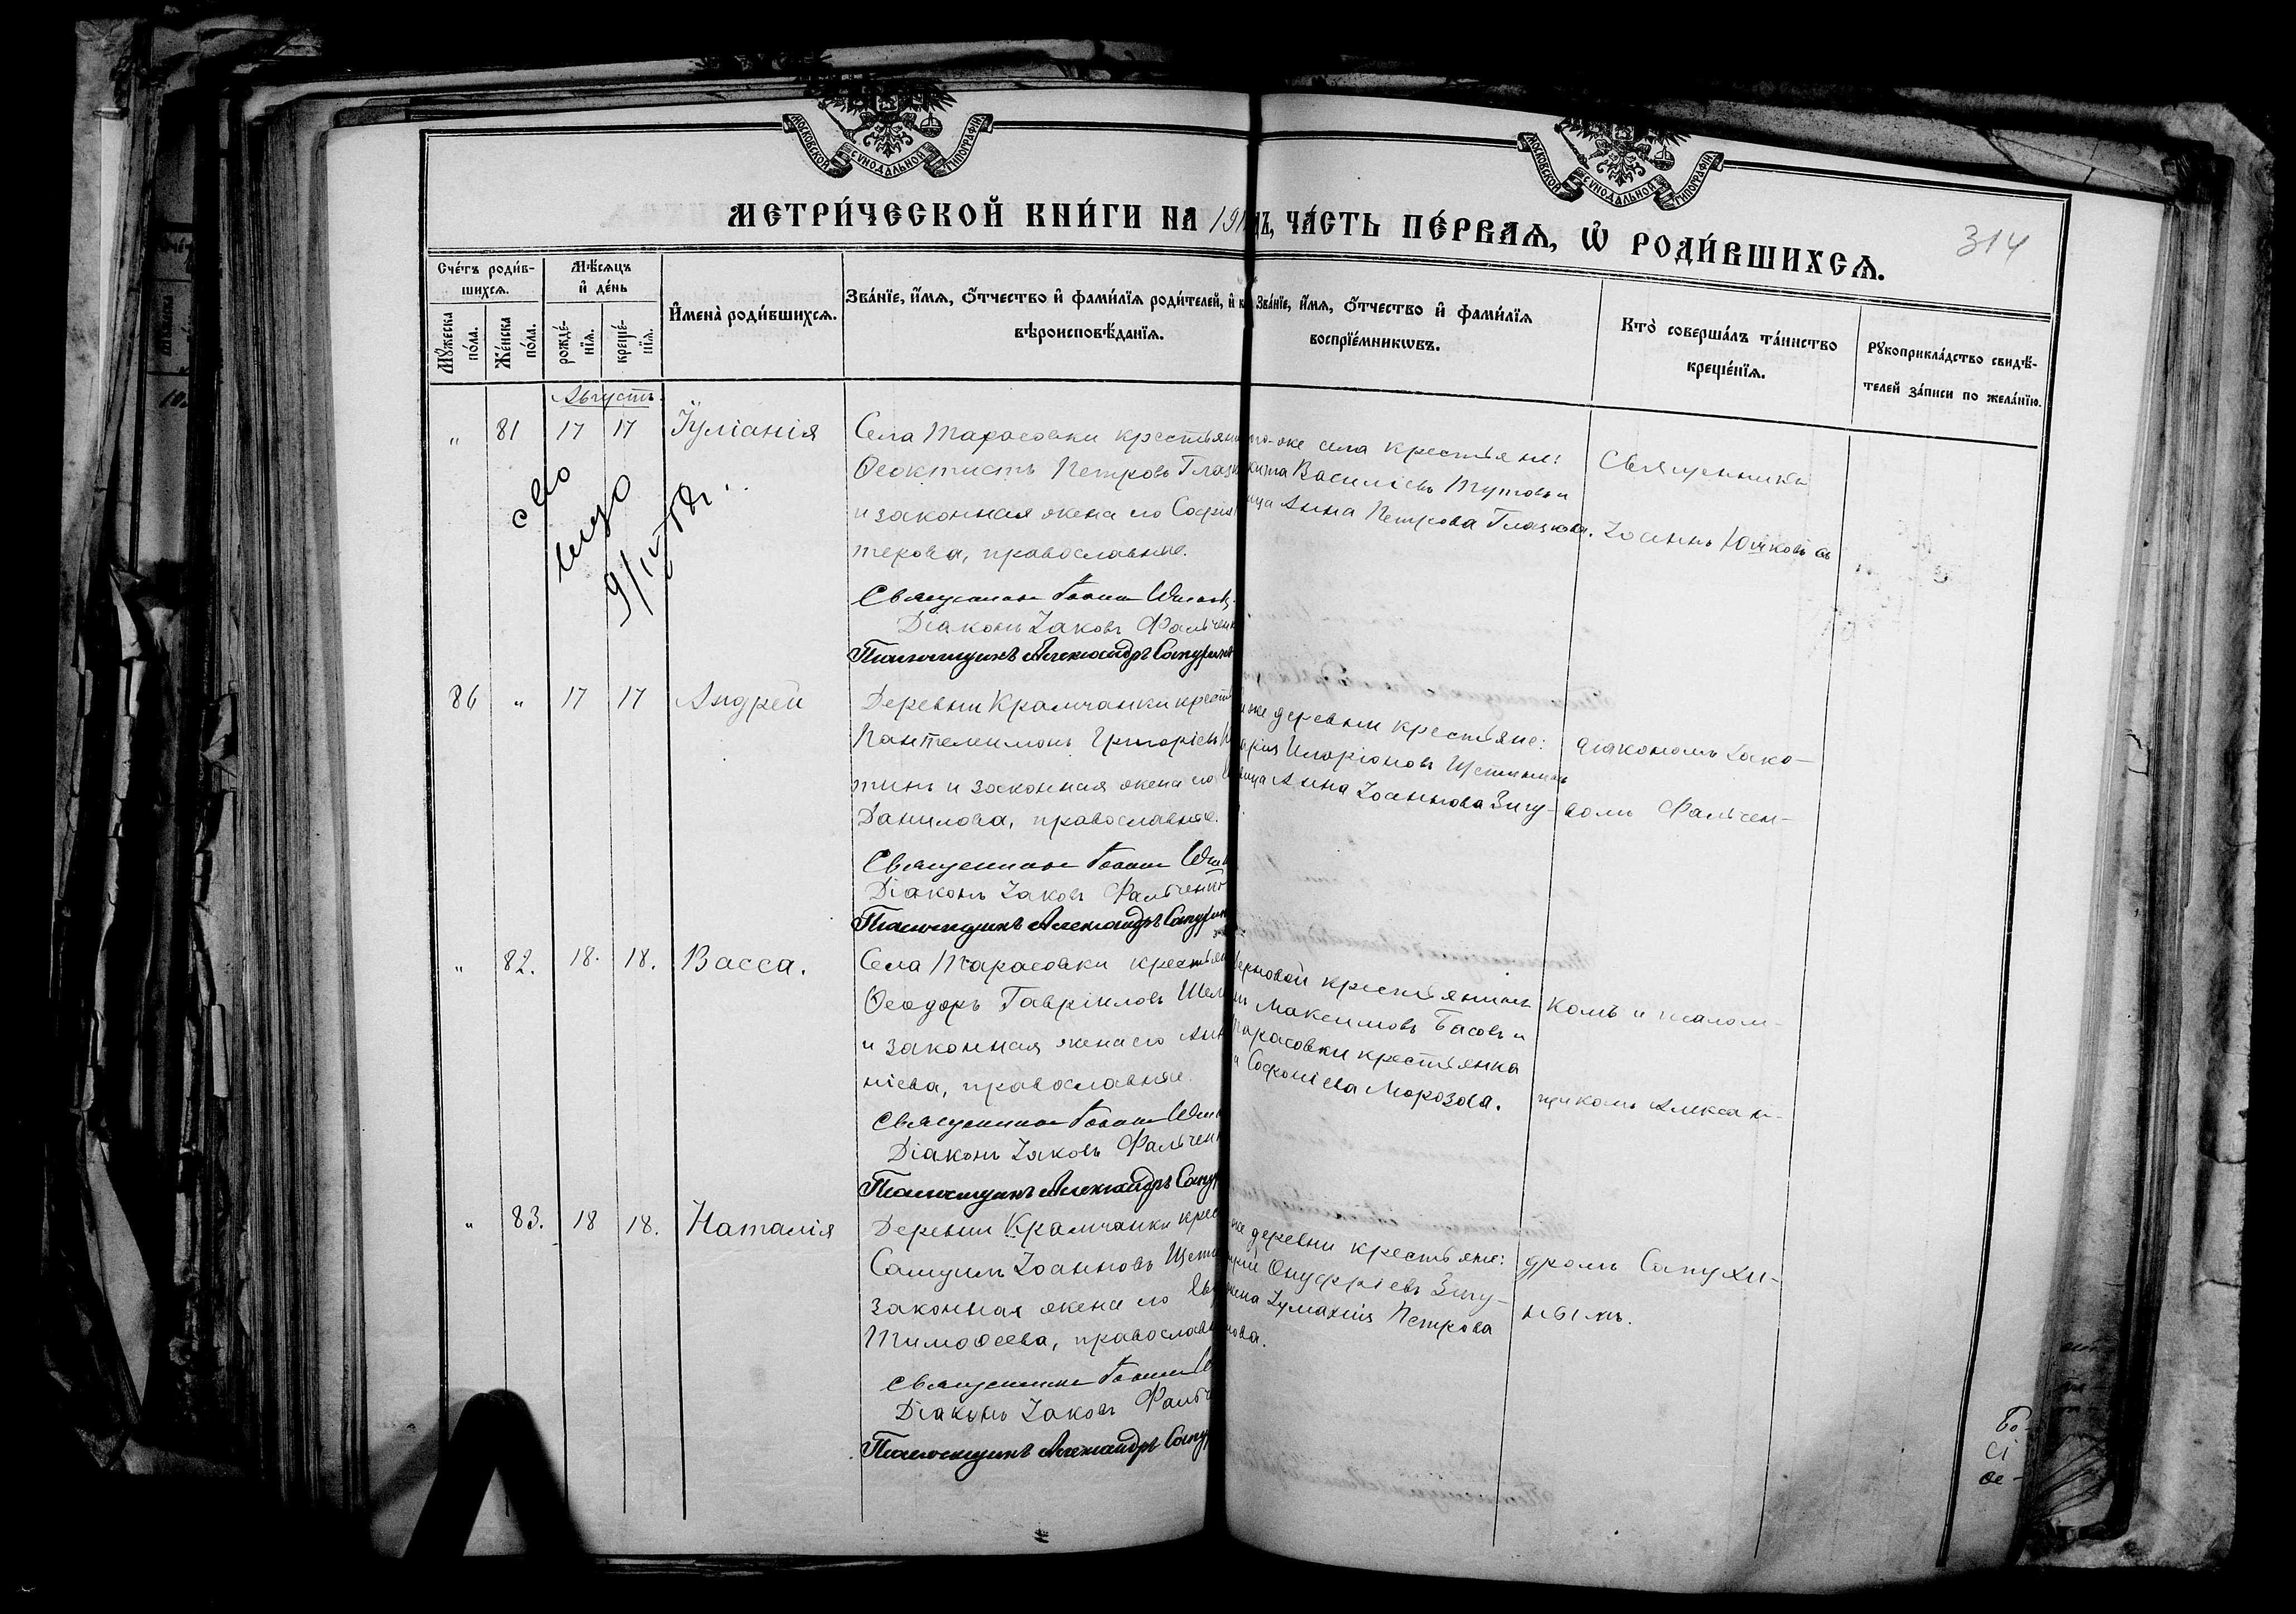 МОСКОВСКОЙ СУНОДАЛЬНОЙ ТИПОГРАФІИ
МОСКОВСКОЙ СУНОДАЛЬНОЙ ТИПОГРАФІИ
МЕТРИ́ЧЕСКОЙ КНИ́ГИ НА 191
ЧА́СТЬ ПЕ́РВАѦ, Ѡ РОДИ́ВШИХСѦ.
314
Сче́тъ роди́в-
шихсѧ.
Мѣ́сѧцъ
и҆ де́нь
Мꙋ́жеска
по́ла.
Же́нска
по́ла.
рожде́-
нїѧ.
креще́-
нїѧ.
И҆мена̀ роди́вшихсѧ.
Зва́нїе, и҆́мѧ, ѻ҆́тчество и҆ фами́лїѧ роди́телей, и҆
вѣроисповѣ́данїѧ.
Зва́нїе, и҆́мѧ, ѻ҆́тчество и҆ фами́лїѧ
воспрїе́мникѡвъ.
Кто̀ соверша́лъ та́инство
креще́нїѧ.
Рꙋкоприкла́дство свидѣ́-
телей за́писи по жела́нїю.
Августъ.
" 81 17 17 Іуліанія
Села Тарасовки крестьяни
Ѳеоктистъ Петровъ Глазк
и законная жена его Софія
терова, православные.
Священник Іоанн
Діаконъ Іаковъ Фальченк
Псаломщикъ Александръ Сапухин
то-же села крестьяне:
кита Василіевъ Тутовъ и
ица Анна Петрова Глазкова.
Священникъ
Іоаннъ Юшковъ съ
86 " 17 17 Андрей
Деревни Крамчанки крест
Пантелеимонъ Григоріевъ
тинъ и законная жена его
Данилова, православные.
Священник Іоанн
Діаконъ Іаковъ Фальченко
Псаломщикъ Александръ Сапухин
же деревни крестьяне:
Иларіоновъ Щетининъ
вица Анна Іоаннова Зигу-
діакономъ Іако-
вомъ Фальчен-
" 82. 18. 18. Васса.
Села Тарасовки крестьян
Ѳеодоръ Гавріиловъ Шел
и законная жена его Анн
ніева, православные.
Священник Іоанн
Діаконъ Іаковъ Фальченк
Псаломщикъ Александръ Сапу
крестьянинъ
Максимовъ Басовъ и
Тарасовки крестьянка
Софроніева Морозова.
комъ и псалом-
щикомъ Алексан-
" 83. 18 18. Наталія
Деревни Крамчанки крес
Самуилъ Іоанновъ Щети
законная жена его Ев
Тимоѳеева, православ
Священник Іоанн
Діаконъ Іаковъ Фальч
Псаломщикъ Александръ Сапу
же деревни крестьяне:
Онуфріевъ Зигу-
жена Іуліанія Петрова
нова.
дромъ Сапухи-
нымъ.